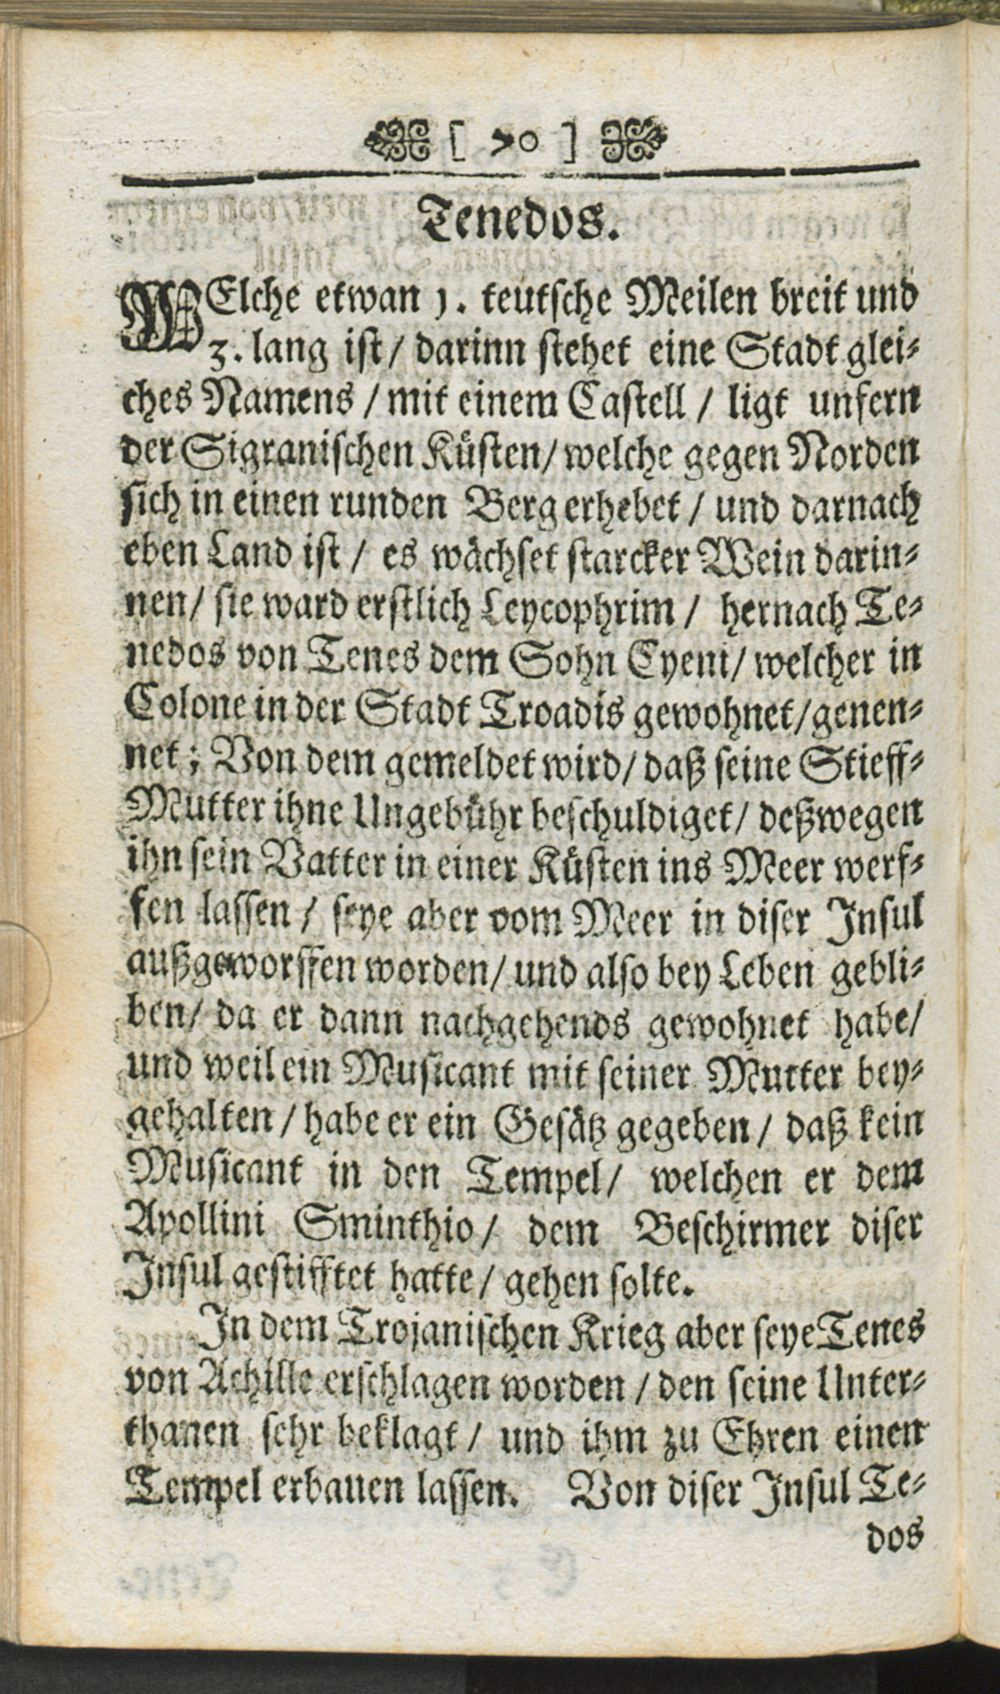 [ 70 ]
Tenedos.
WElche etwan 1. teutsche Meilen breit und
3. lang ist/ darinn stehet eine Stadt glei-
ches Namens / mit einem Castell / ligt unfern
der Sigranischen Küsten/ welche gegen Norden
sich in einen runden Berg erhebet / und darnach
eben Land ist / es wächset starcker Wein darin-
nen/ sie ward erstlich Leycophrim / hernach Te-
nedos von Tenes dem Sohn Cyeni/ welcher in
Colone in der Stadt Troadis gewohnet/genen-
net; Von dem gemeldet wird/ daß seine Stieff-
Mutter ihne Ungebühr beschuldiget/ deßwegen
ihn sein Vatter in einer Küsten ins Meer werf-
fen lassen / seye aber vom Meer in diser Insul
außgeworffen worden/ und also bey Leben gebli-
ben/ da er dann nachgehends gewohnet habe/
und weil ein Musicant mit seiner Mutter bey-
gehalten / habe er ein Gesätz gegeben / daß kein
Musicant in den Tempel/ welchen er dem
Apollini Sminthio / dem Beschirmer diser
Insul gestifftet hatte / gehen solte.
In dem Trojanischen Krieg aber seye Tenes
von Achille erschlagen worden / den seine Unter-
thanen sehr beklagt / und ihm zu Ehren einen
Tempel erbauen lassen. Von diser Insul Te-
dos